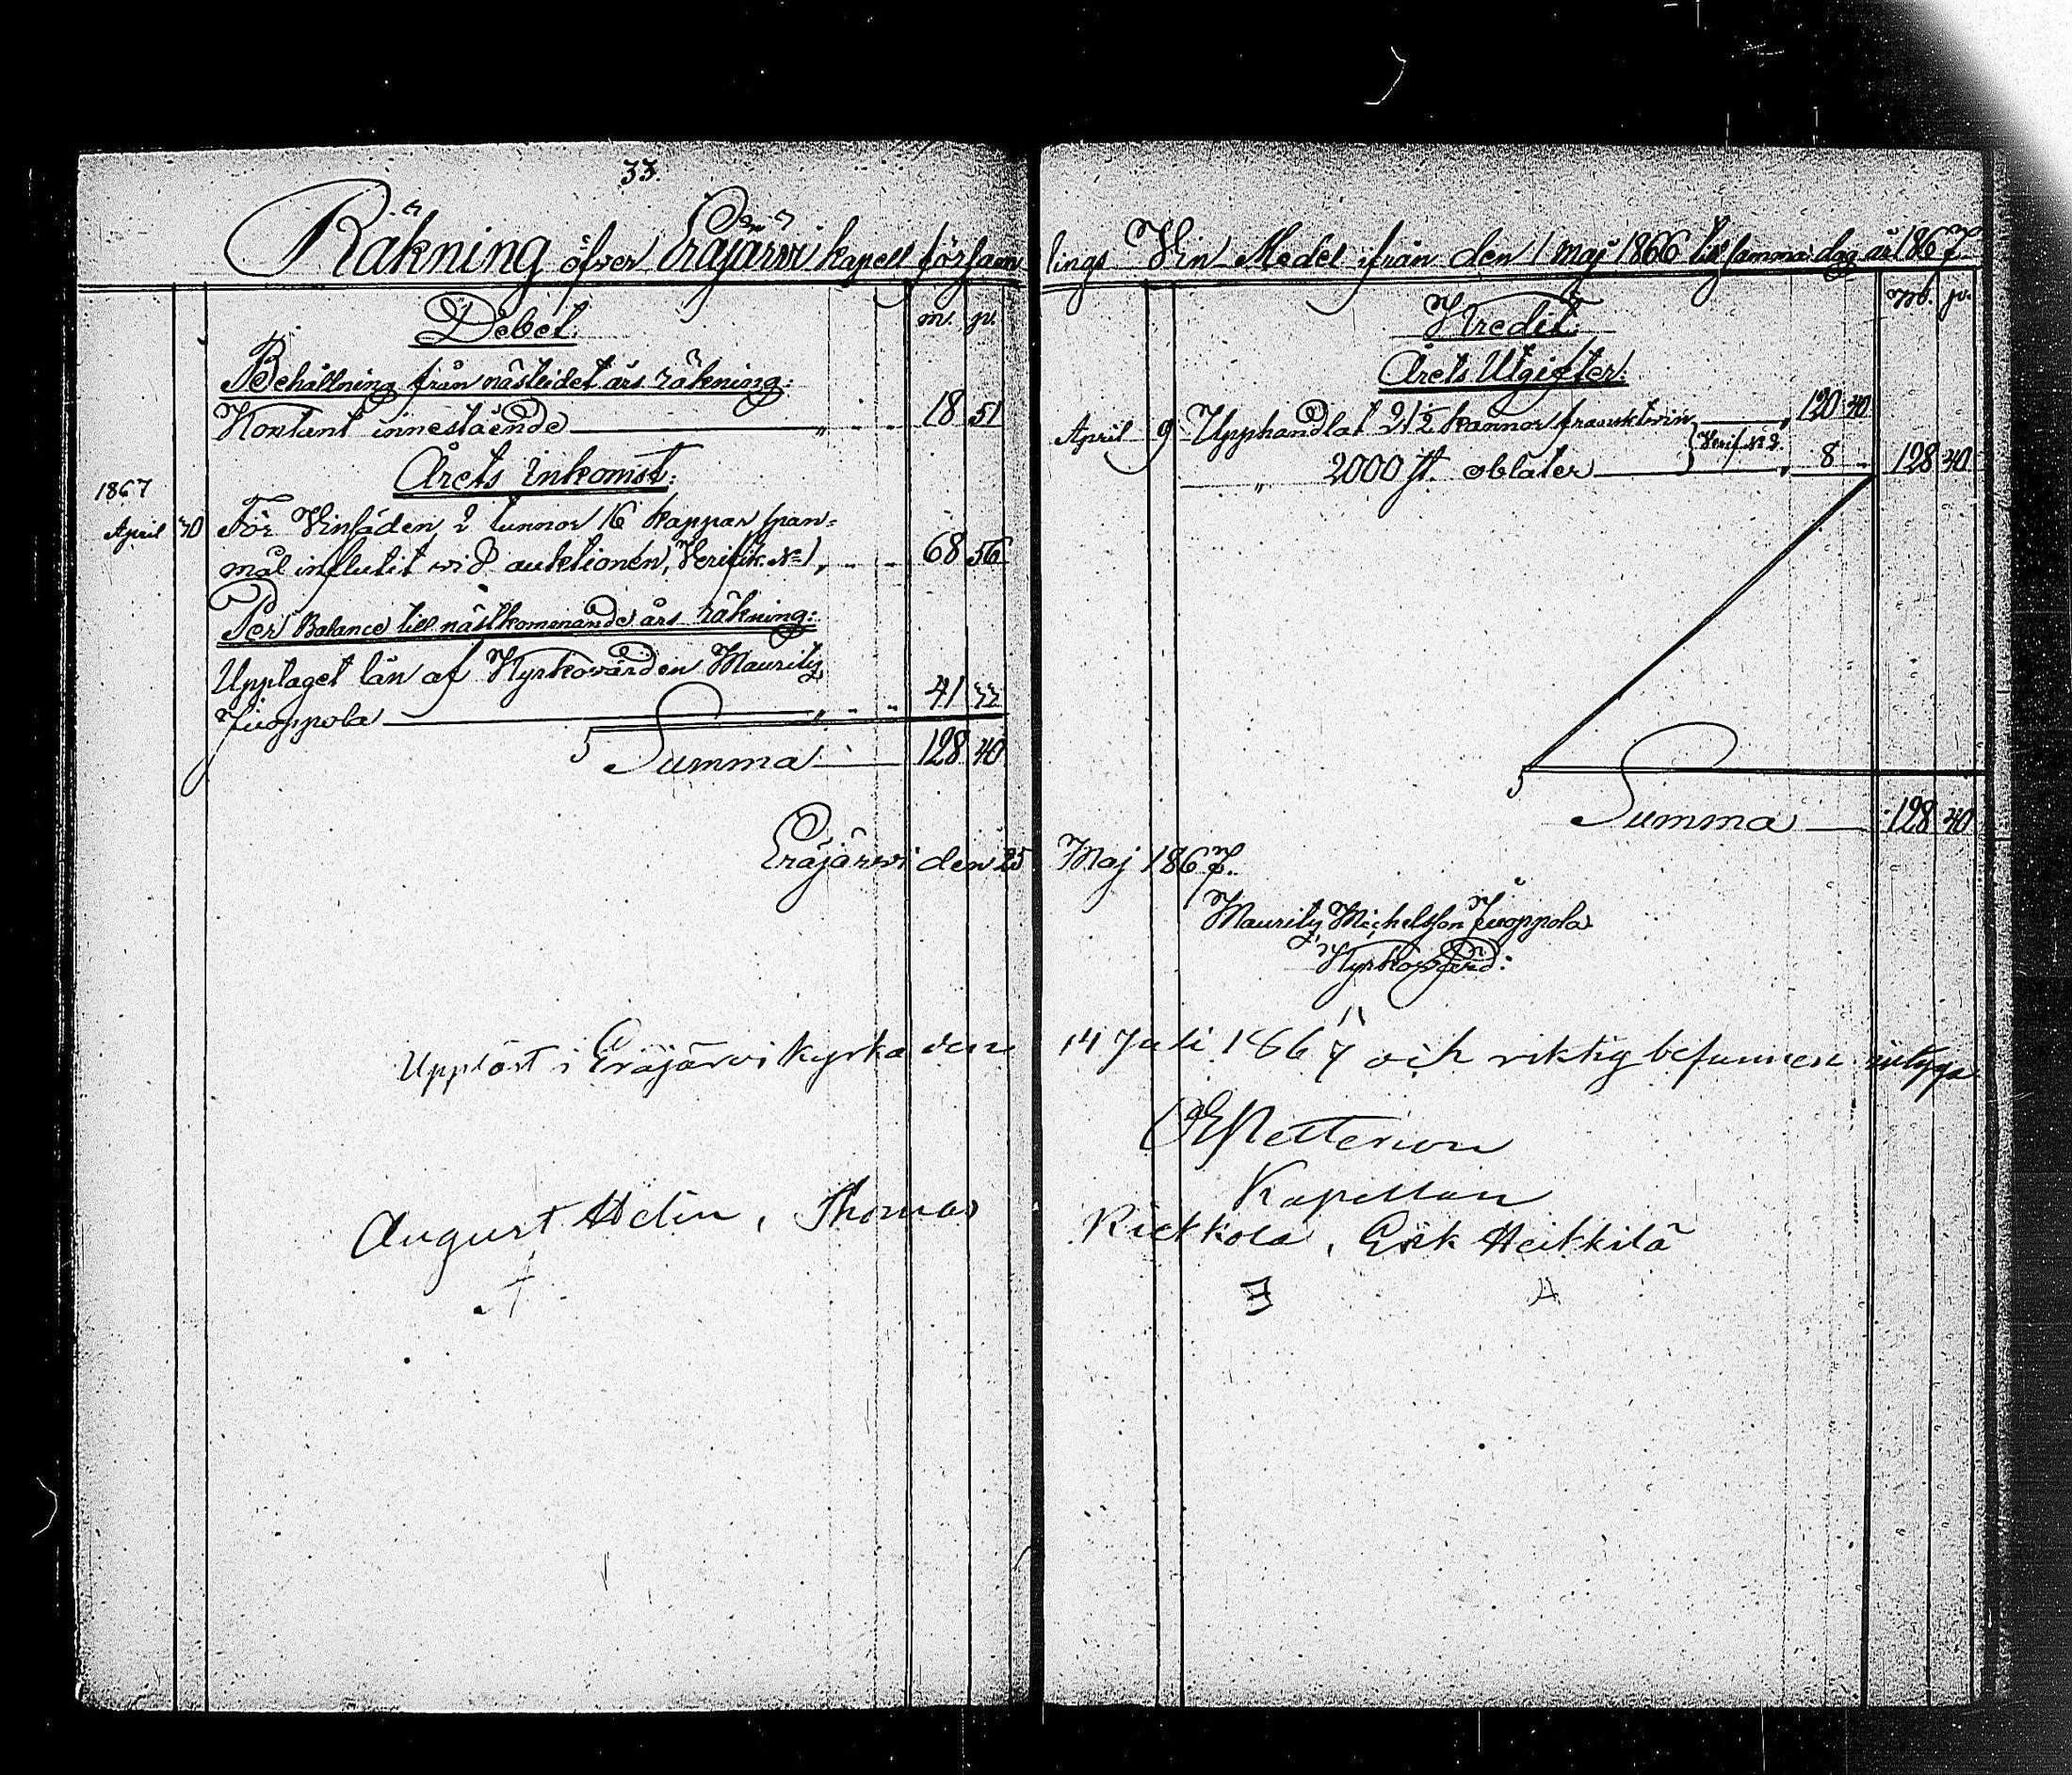 33.
Räkning öfver Eräjärwi kapell försam
lings Vin Medel ifrån den 1 maj 1866 till samma dag år 1867.
Debet.
m. p.
Behållning från nästleidet års räkning:
Kontant innestående 18 51
Årets Inkomst:
1867
April 30 För Vinsäden 2 tunnor 16 kappar span-
mål influtit wid auktionen, Verifik. № 1, 68 56
Per Balance till nästkommande års räkning:
Upptaget lån af Kyrkovärden Mauritz
Juoppola 41 33
Summa 128 40
Eräjärwi den 25
Upplöst i Eräjärwi kyrka den
August Helin, Thomas
Kredit.
M. p.
Årets Utgifter:
April 9 Upphandlat 21½ kannor fransktwin 120 40
Verif. № 2.
" 2000 st. oblater 8 " 128 40
Summa 128 40
Maj 1867.
Mauritz Michelsson Juoppola
Kyrkowärd:
14 Juli 1867 och riktig befunnen intyga
Petterson
Kapellan
Riekkola, Erik Heikkilä